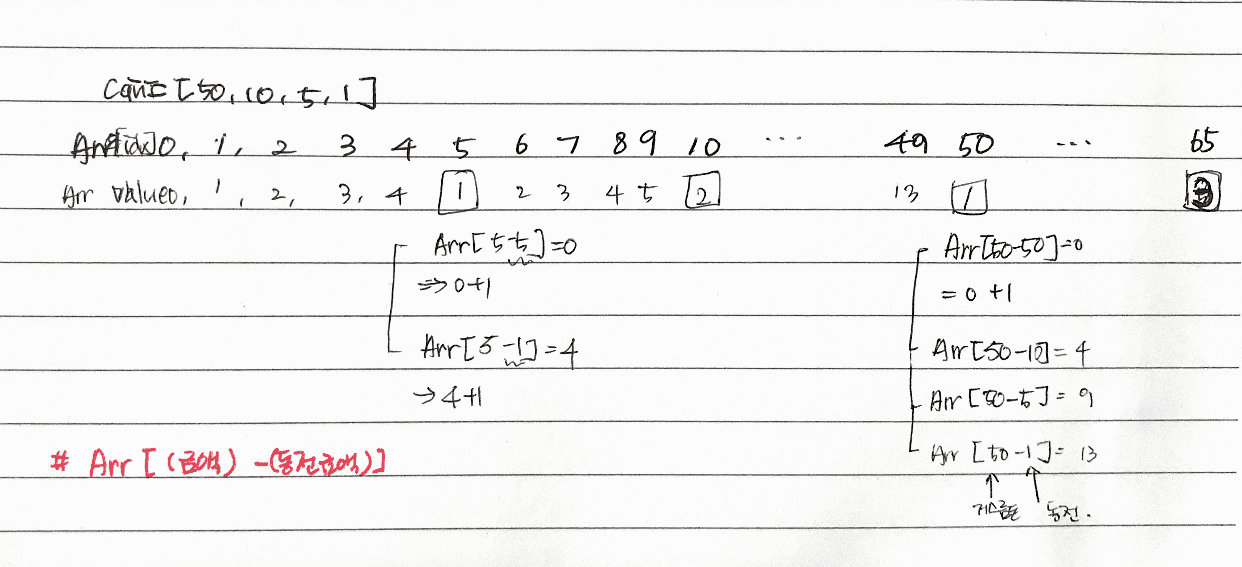 Coin = [50, 10, 5, 1]
Arr[idx] 0, 1, 2 3 4 5 6 7 8 9 10 ... 49 50 ... 65
Arr value 0, 1, 2, 3, 4 1 2 3 4 5 2 13 1 3
Arr[5-5]=0
⇒ 0+1
Arr[5-1]=4
→ 4+1
Arr[50-50]=0
= 0 +1
Arr[50-10]= 4
Arr[50-5]= 9
Arr [50-1]= 13
거스름돈 동전.
# Arr [ (금액) -(동전금액)]